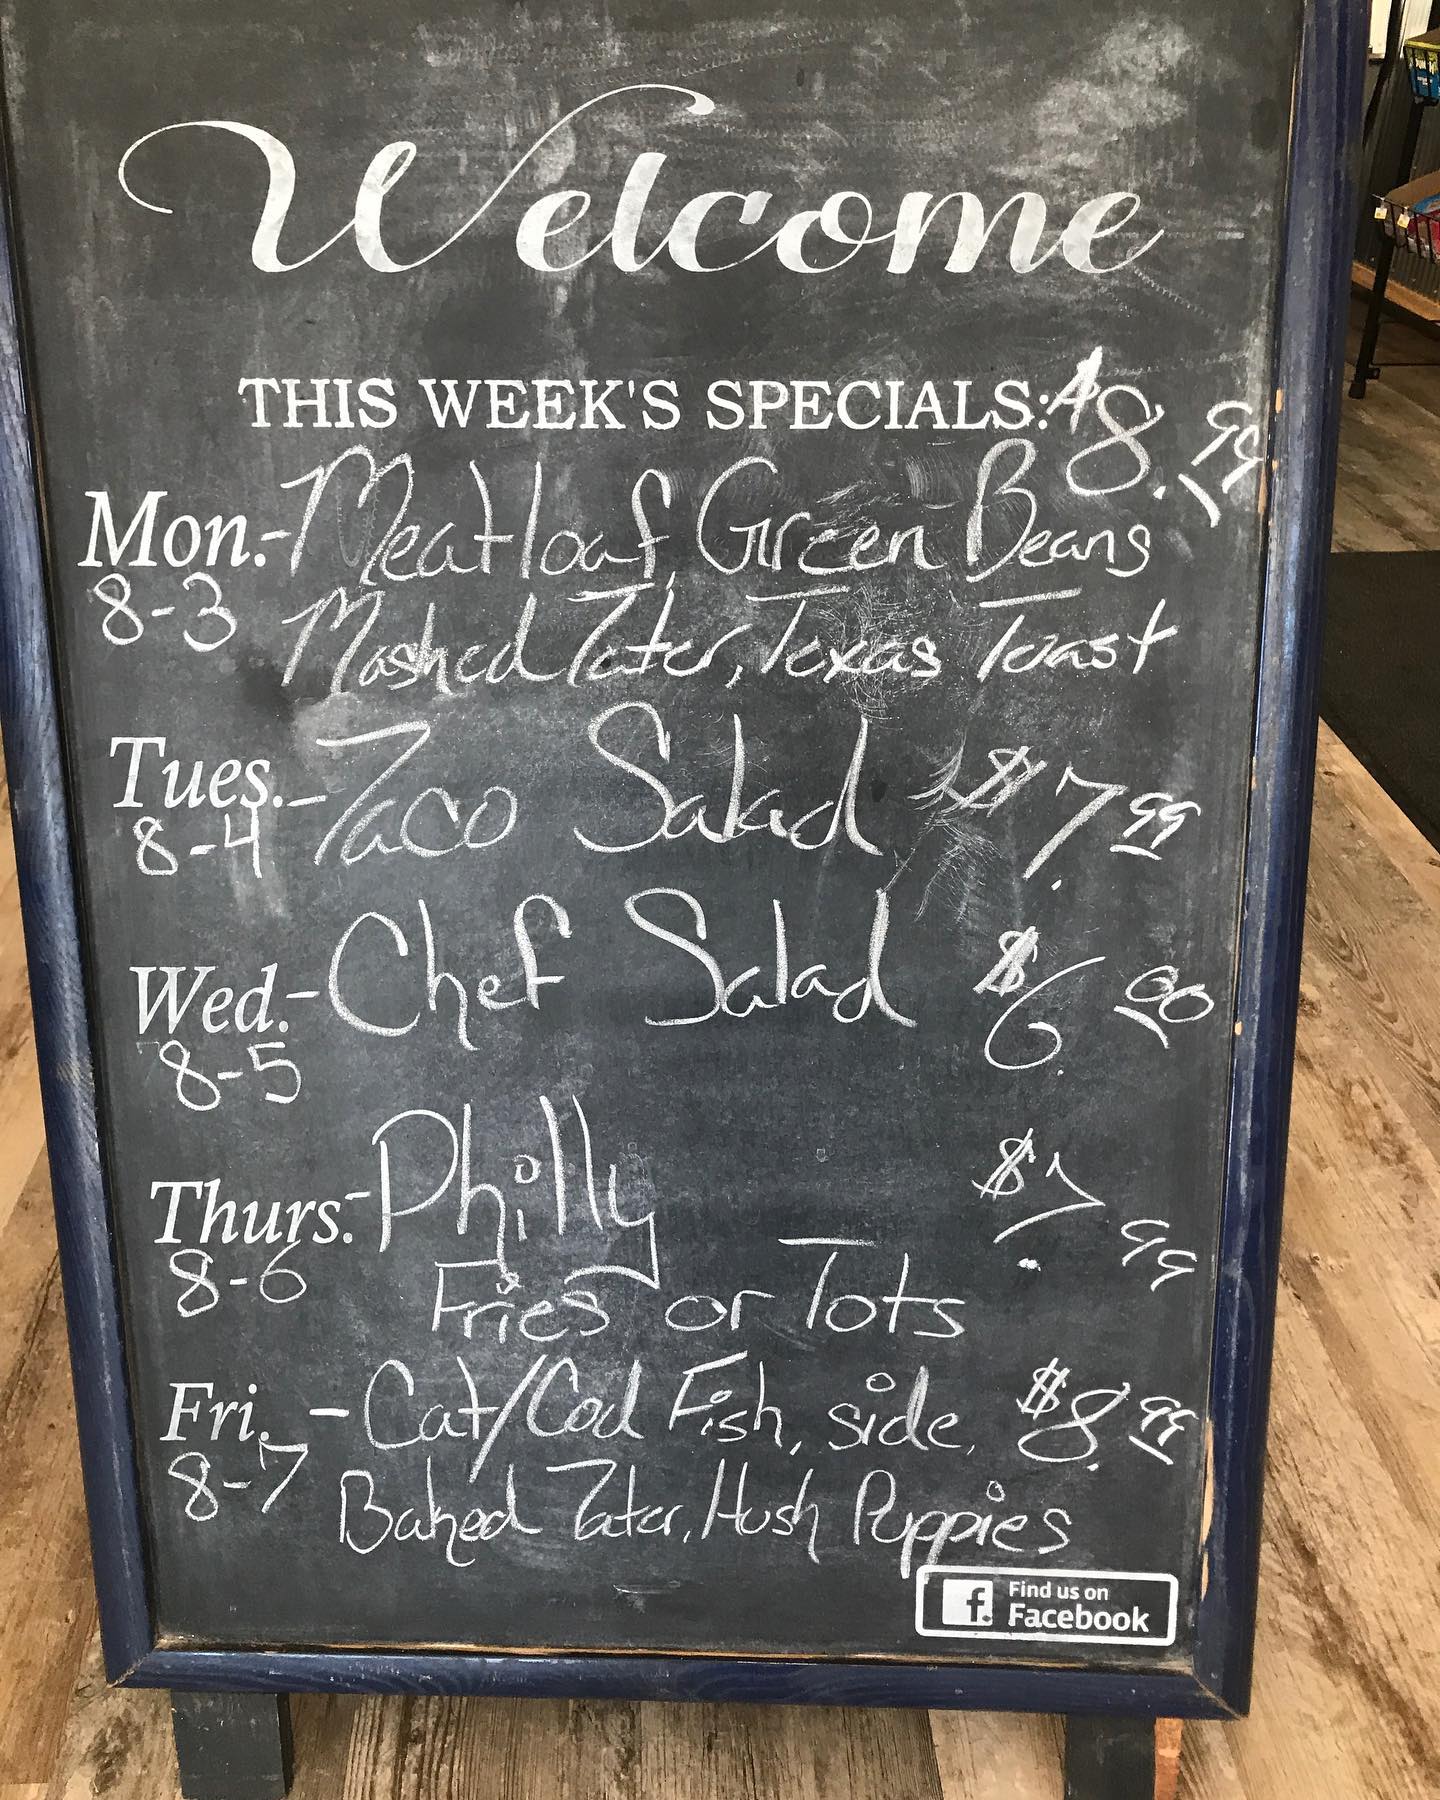 Welcome
THIS WEEK'S SPECIALS: $8.99
Mon.- Meatloaf, Green Beans
8-3 Mashed Tater, Texas Toast
Tues.- Taco Salad $7.99
8-4
Wed.- Chef Salad $6.00
8-5
Thurs.- Philly $7.99
8-6 Fries or Tots
Fri. - Cat/Cod Fish, side, $8.99
8-7 Baked Tater, Hush Puppies
f Find us on
Facebook